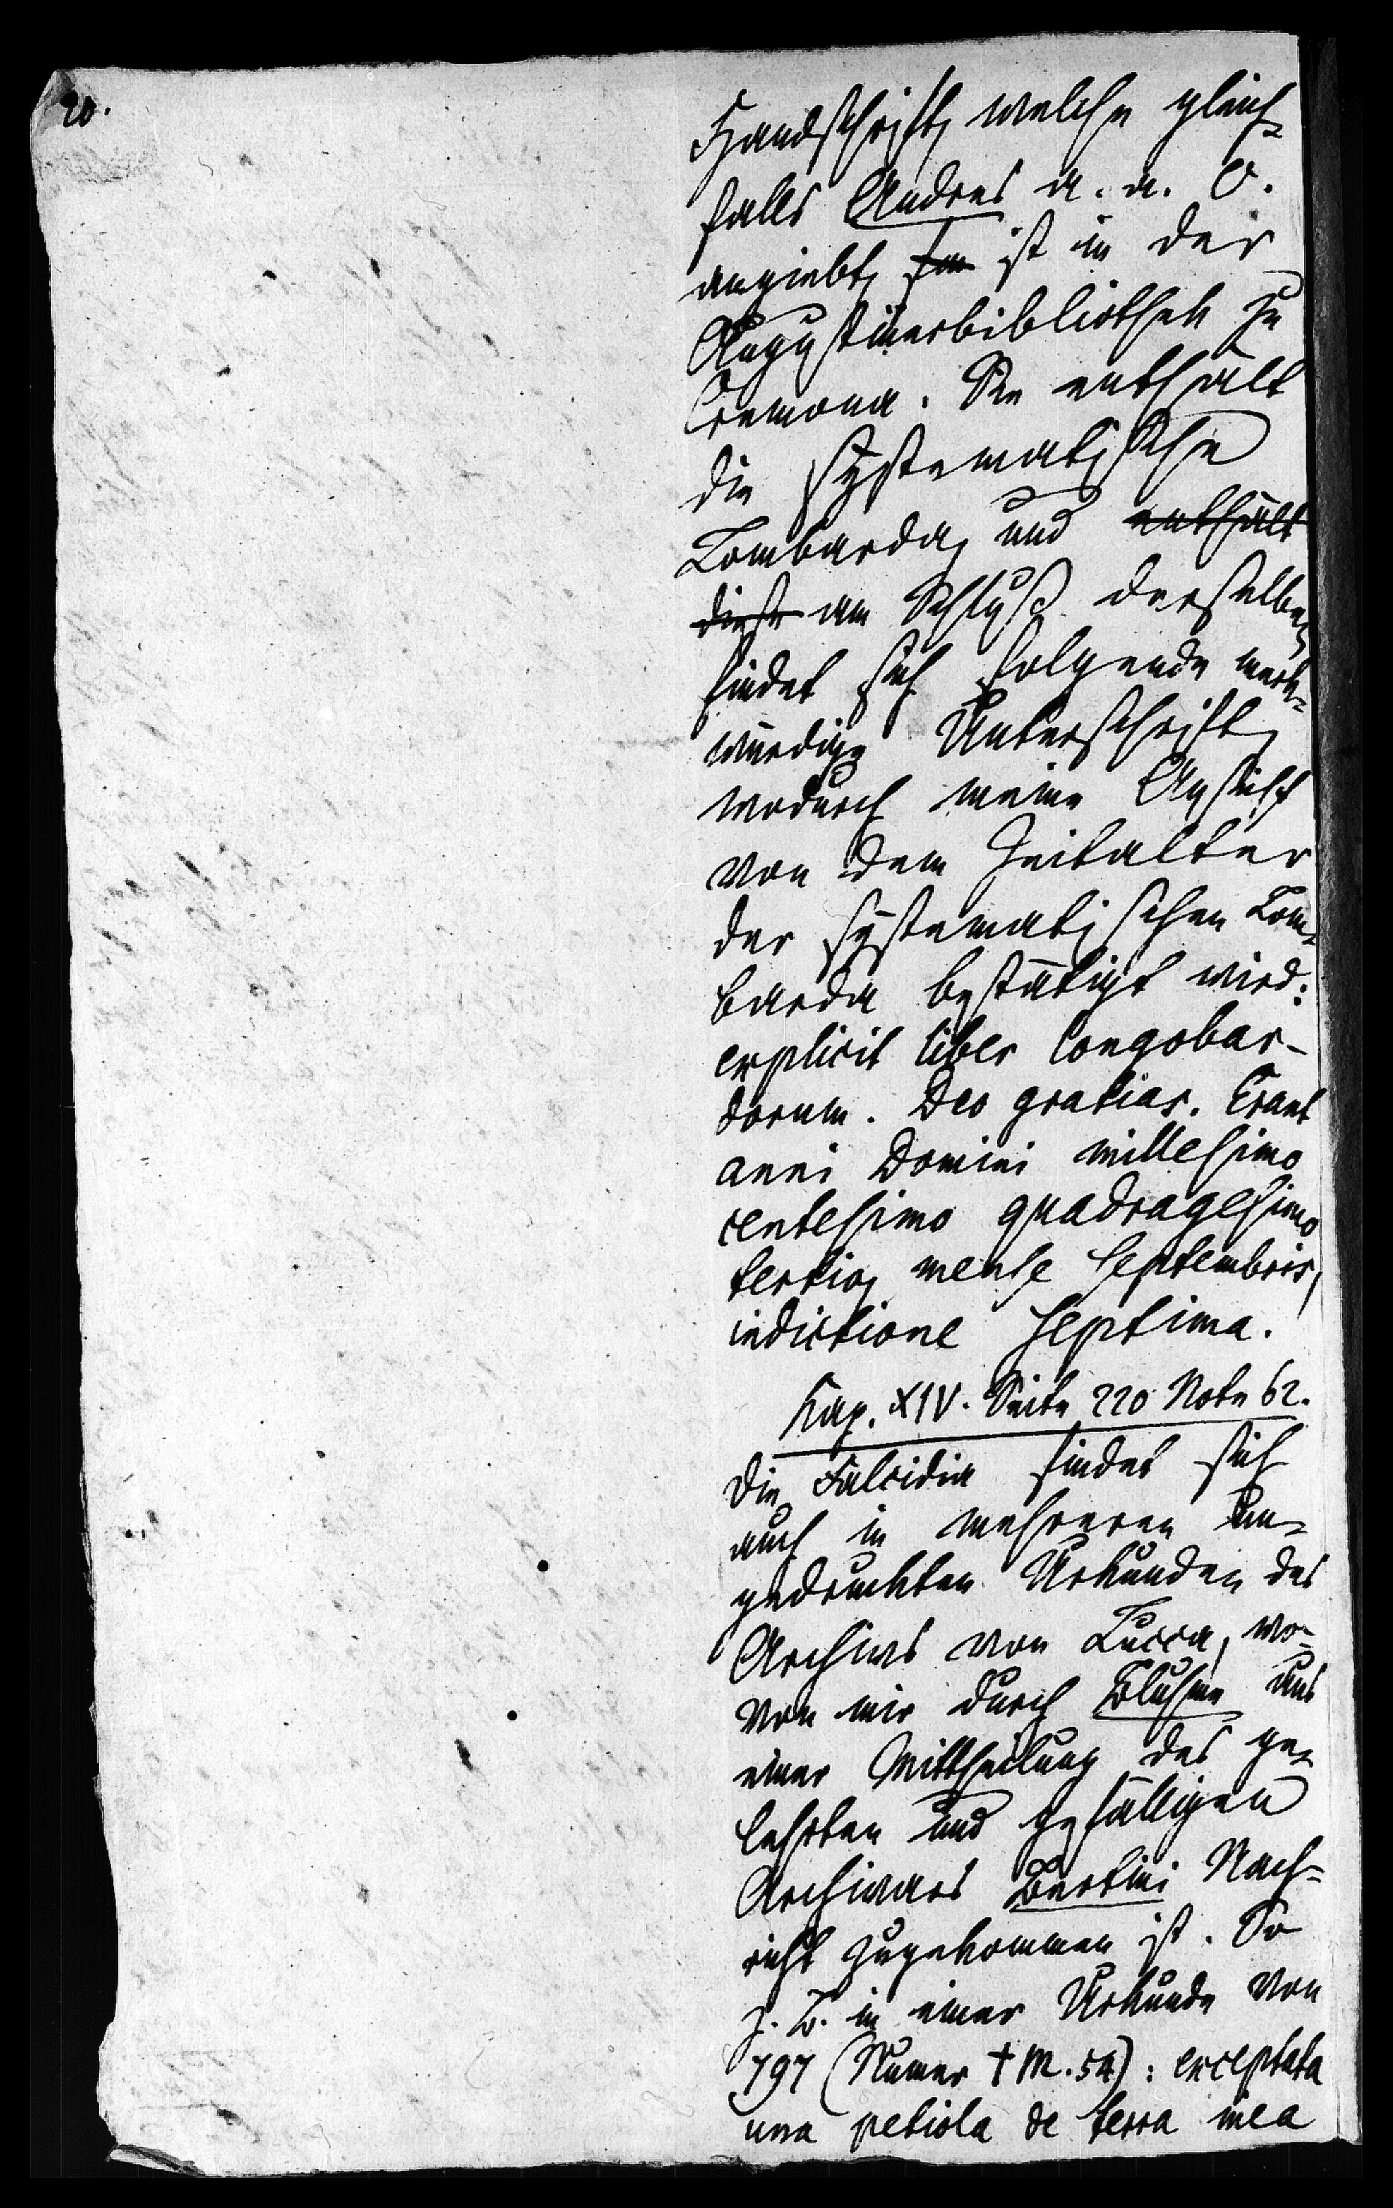 20.
Handschrift, welche gleich-
falls Andres a. a. O.
angiebt, ist in der
Augustinerbibliothek zu
Cremona. Sie enthält
die systematische
Lombarda, und enthält
diese am Schluß derselben
findet sich folgende merk-
würdige Unterschrift,
wodurch meine Ansicht
von dem Zeitalter
der systematischen Lom-
barda bestätigt wird:
explicit liber Longobar-
dorum. Deo gratias. Erant
anni Domini millesimo
centesimo quadragesimo
tertio, mense Septembris,
indictione septima.
Kap. XIV. Seite 220 Note 62.
Die Falcidia findet sich
auch in mehreren un-
gedruckten Urkunden des
Archivs von Lucca, wo-
von mir durch Bluhme aus
einer Mittheilung des ge-
lehrten und gefälligen
Archivars Bertini Nach-
richt zugekommen ist. So
z. B. in einer Urkunde von
797 (Numer † M. 54): exceptata
una petiola de terra mea